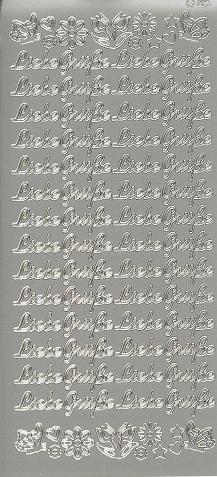 Liebe Grüße Liebe Grüße
Liebe Grüße Liebe Grüße
Liebe Grüße Liebe Grüße
Liebe Grüße Liebe Grüße
Liebe Grüße Liebe Grüße
Liebe Grüße Liebe Grüße
Liebe Grüße Liebe Grüße
Liebe Grüße Liebe Grüße
Liebe Grüße Liebe Grüße
Liebe Grüße Liebe Grüße
Liebe Grüße Liebe Grüße
Liebe Grüße Liebe Grüße
Liebe Grüße Liebe Grüße
Liebe Grüße Liebe Grüße